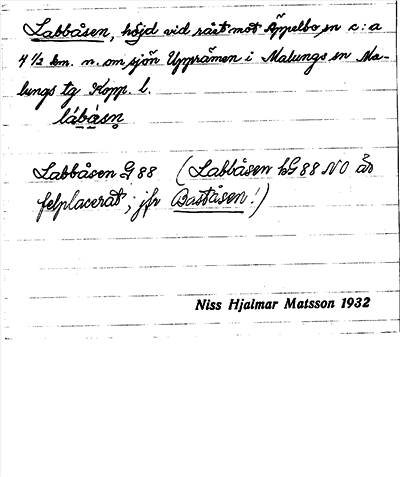 Labbåsen, höjd vid rået mot Äppelbo sn c:a
4 1/2 km. n. om sjön Upprämen i Malungs sn Ma-
lungs tg Kopp. l.
lábåsn̥
Labbåsen G 88 (Labbåsen hG 88 NO är
felplacerat; jfr Baståsen!)
Niss Hjalmar Matsson 1932